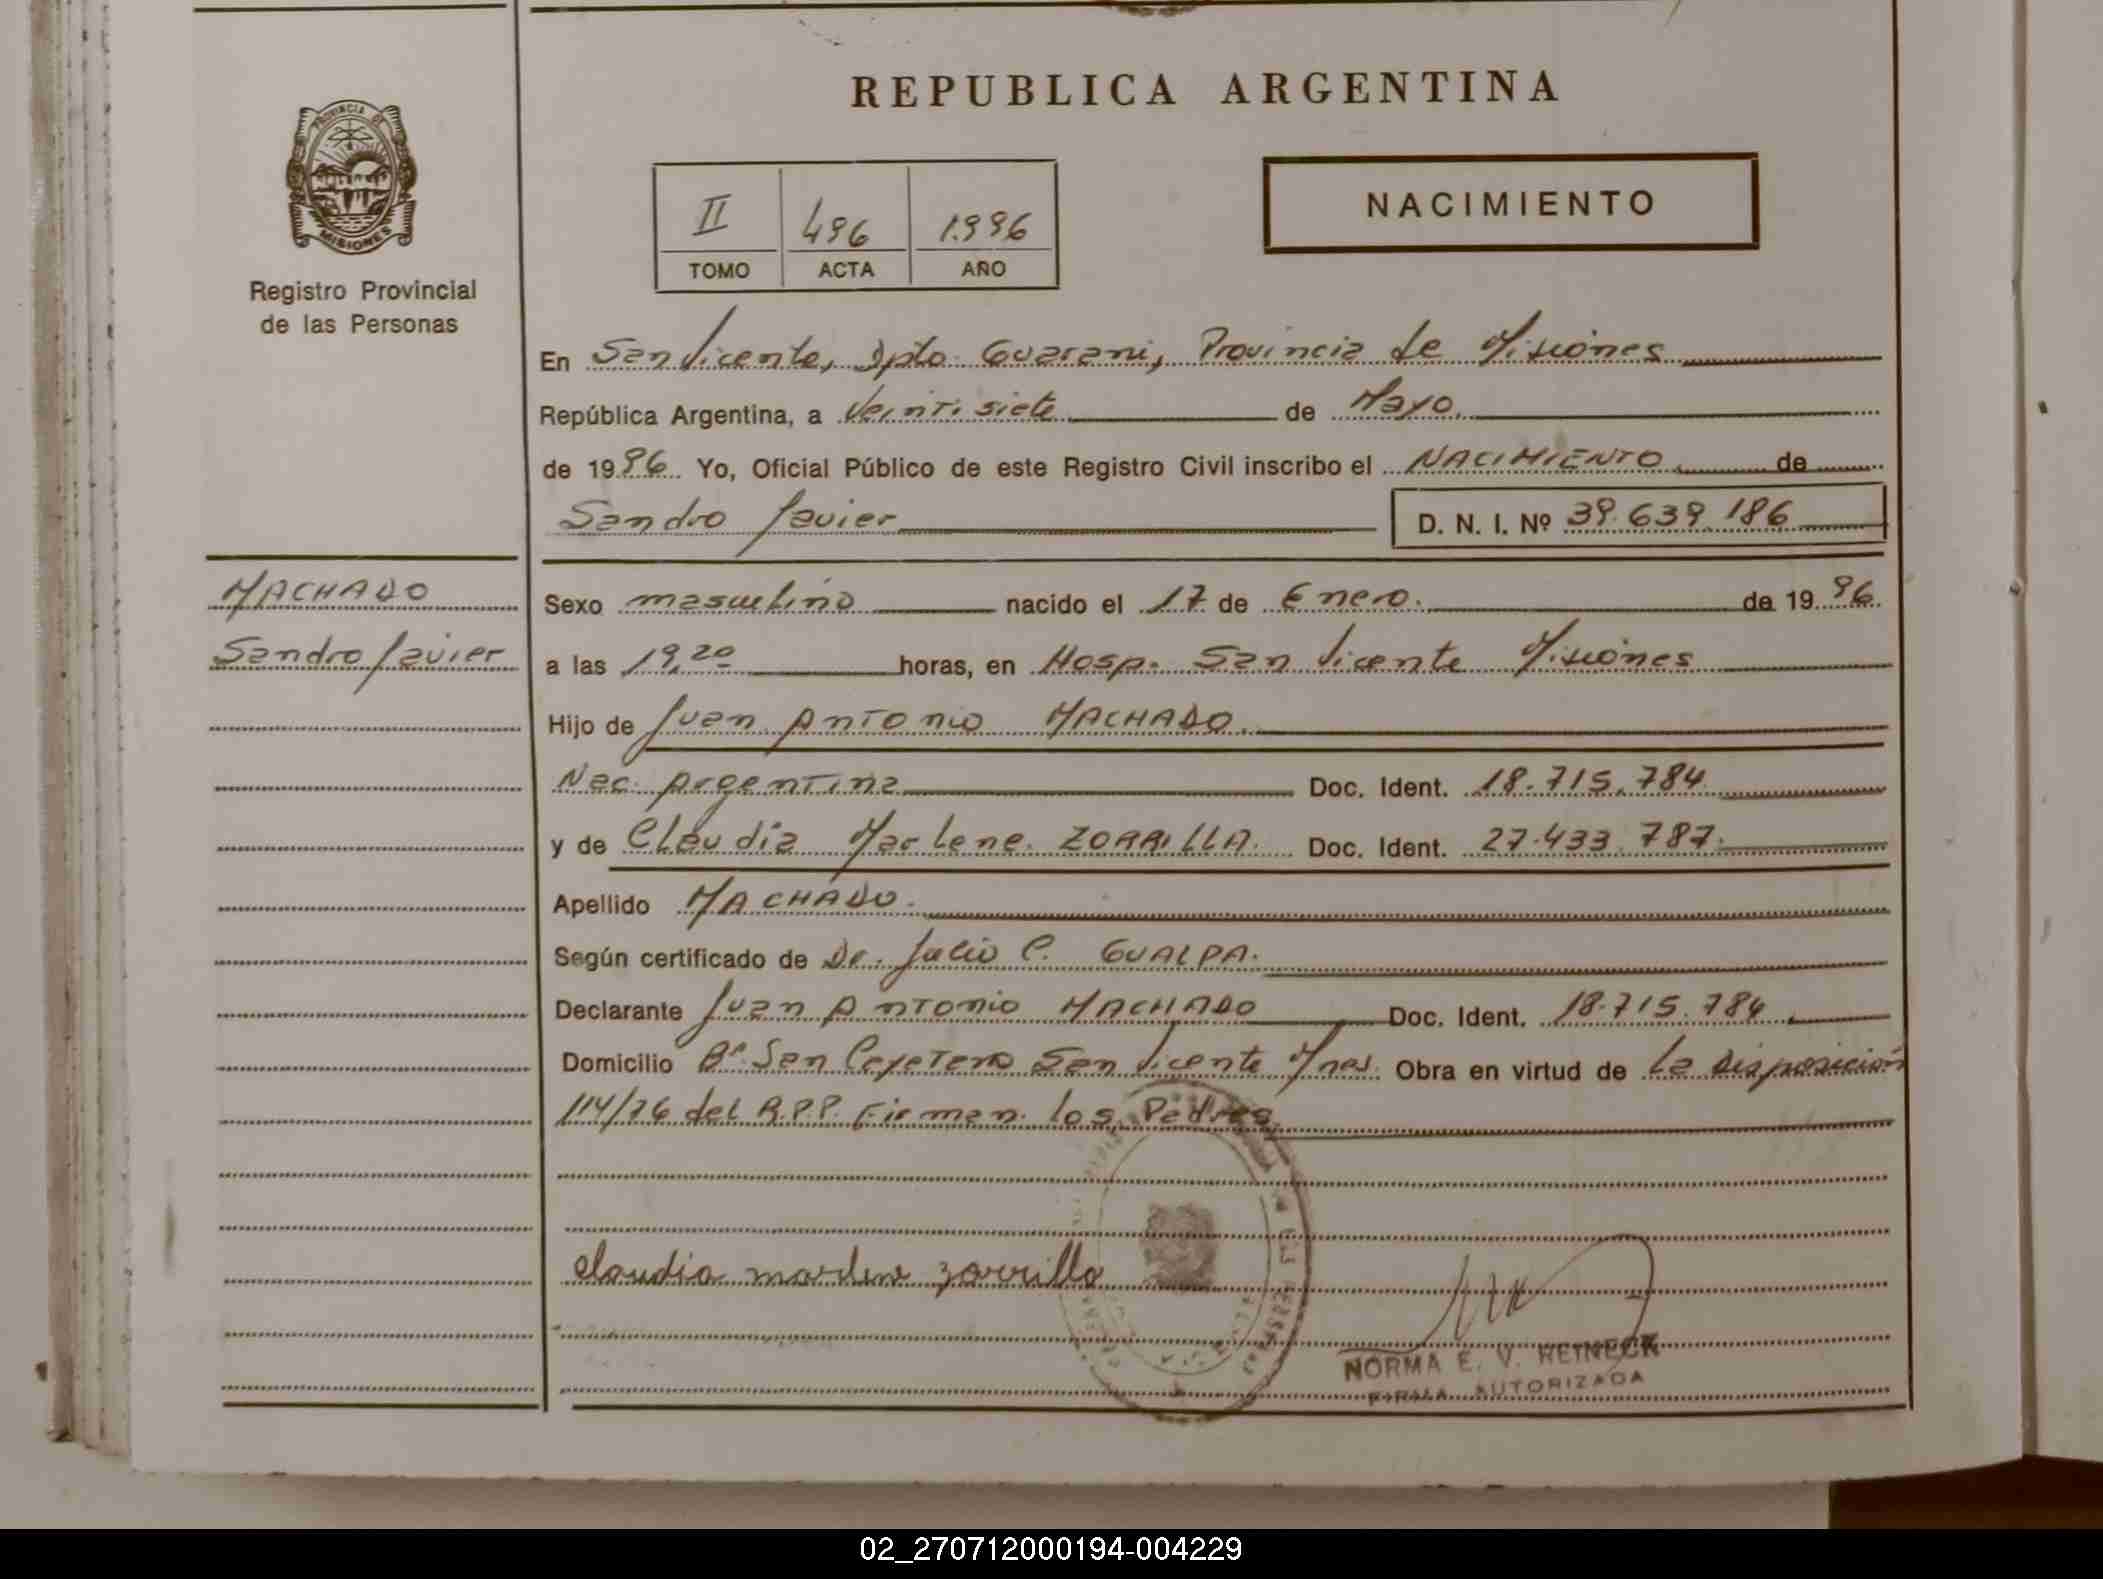 REPUBLICA ARGENTINA
PROVINCIA DE
MISIONES
Registro Provincial
de las Personas
II 496 1.996
TOMO ACTA AÑO
NACIMIENTO
En San Vicente, Dpto. Guarani, Provincia de Misiones
República Argentina, a Veinti siete de Mayo.
de 1996 Yo, Oficial Público de este Registro Civil inscribo el NACIMIENTO de
Sandro Javier D. N. I. Nº 39.639.186
MACHADO
Sandro Javier
Sexo masculino nacido el 17 de Enero. de 1996.
a las 19,20 horas, en Hosp. San Vicente Misiones
Hijo de Juan Antonio MACHADO.
Nac. Argentina Doc. Ident. 18.715.784
y de Claudia Marlene ZORRILLA. Doc. Ident. 27.433.787.
Apellido MACHADO.
Según certificado de Dr. Julio C. GUALPA.
Declarante Juan Antonio MACHADO Doc. Ident. 18.715.784
Domicilio Bº San Cayetano San Vicente Mnes. Obra en virtud de la Disposición
114/76 del R.P.P. Firman los Padres
claudia marlene zorrilla
NORMA E. V. REINECK
FIRMA AUTORIZADA
02_270712000194-004229